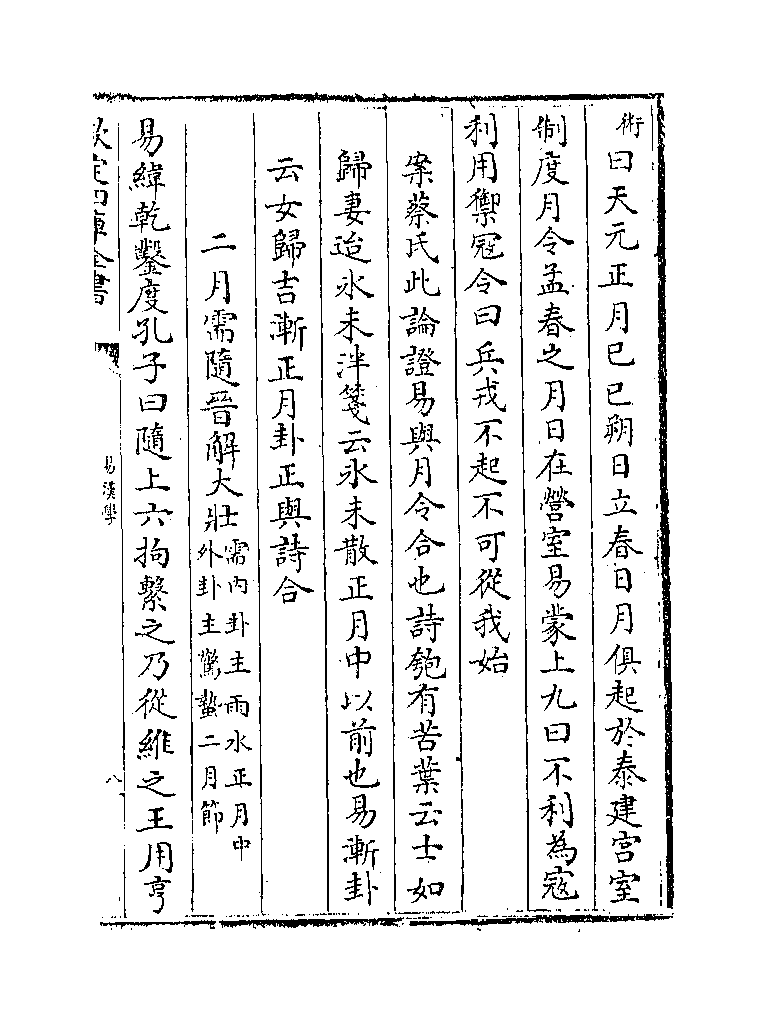 術曰天元正月己巳朔日立春日月俱起於泰建宮室
制度月令孟春之月日在營室易蒙上九曰不利為寇
利用禦寇令曰兵戎不起不可從我始
案蔡氏此論證易與月令合也詩匏有苦葉云士如
歸妻迨氷未泮箋云氷未散正月中以前也易漸卦
云女歸吉漸正月卦正與詩合
二月需隨晉解大壯需内卦主雨水正月中
外卦主驚蟄二月節
易緯乾鑿度孔子曰隨上六拘繫之乃從維之王用亨
欽定四庫全書
易漢學
八